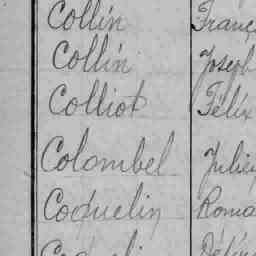 Collin Franç
Collin Joseph
Colliot Félix
Colombel Julie
Coquelin Roma